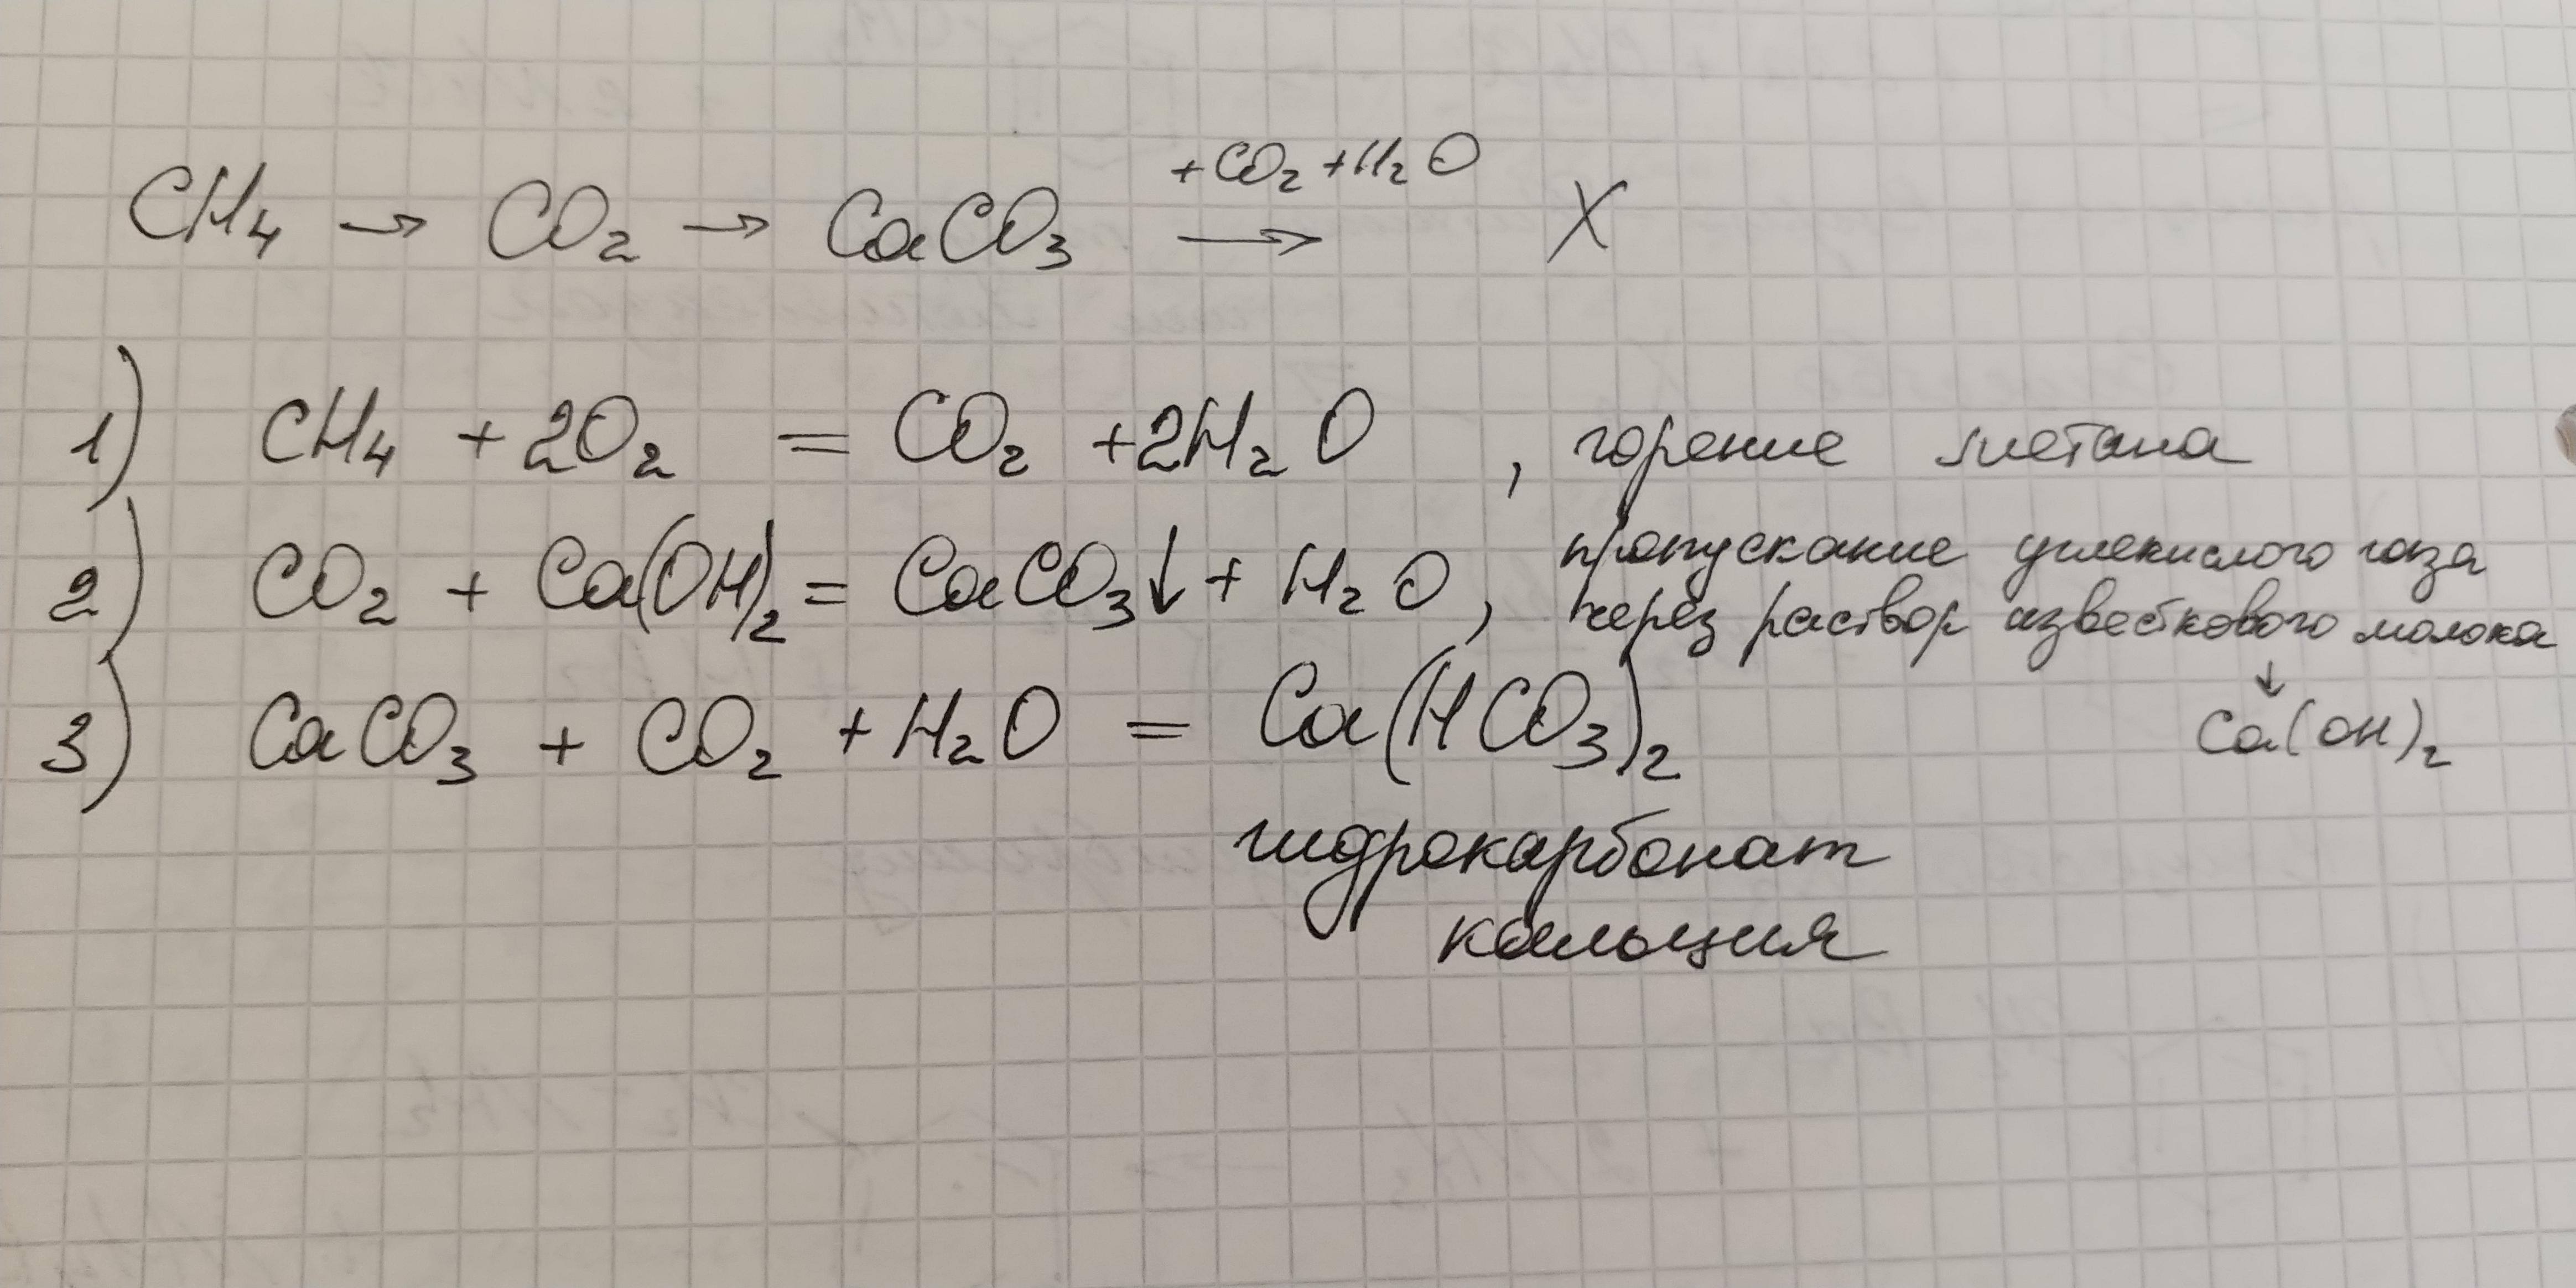 CH₄ → CO₂ → CaCO₃ +CO₂ +H₂O → X
1) CH₄ + 2O₂ = CO₂ + 2H₂O , горение метана
2) CO₂ + Ca(OH)₂ = CaCO₃↓ + H₂O , пропускание углекислого газа
через раствор известкового молока
↓
Ca(OH)₂
3) CaCO₃ + CO₂ + H₂O = Ca(HCO₃)₂
гидрокарбонат
кальция